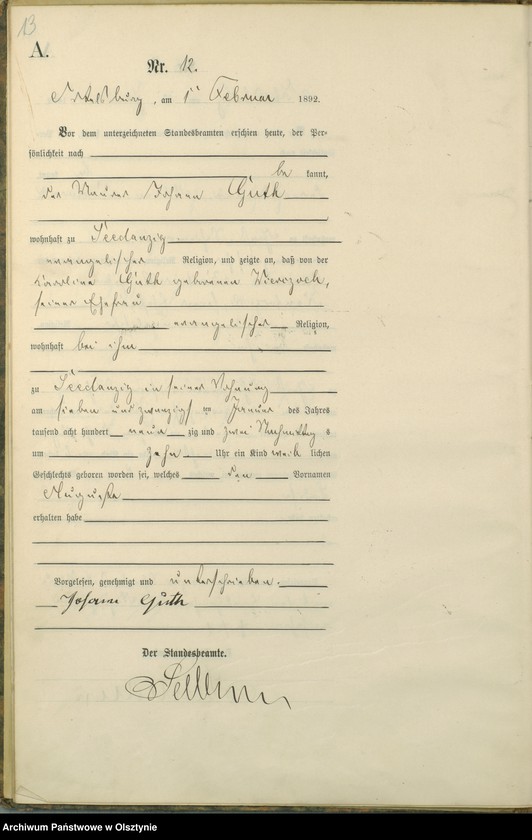 13
A.
Nr. 12.
Ortelsburg, am 1ten Februar 1892.
Vor dem unterzeichneten Standesbeamten erschien heute, der Per-
sönlichkeit nach
be kannt,
der Maurer Johann Guth
wohnhaft zu Seedanzig
evangelischer Religion, und zeigte an, daß von der
Karoline Guth geborenen
seiner Ehefrau
evangelischer Religion,
wohnhaft bei ihm
zu Seedanzig in seiner Wohnung
am sieben und zwanzigsten Januar des Jahres
tausend acht hundert neun zig und zwei Nachmittags
um zehn Uhr ein Kind weib lichen
Geschlechts geboren worden sei, welches den Vornamen
Auguste
erhalten habe
Vorgelesen, genehmigt und unterschrieben.
Johann Guth
Der Standesbeamte.
Archiwum Państwowe w Olsztynie